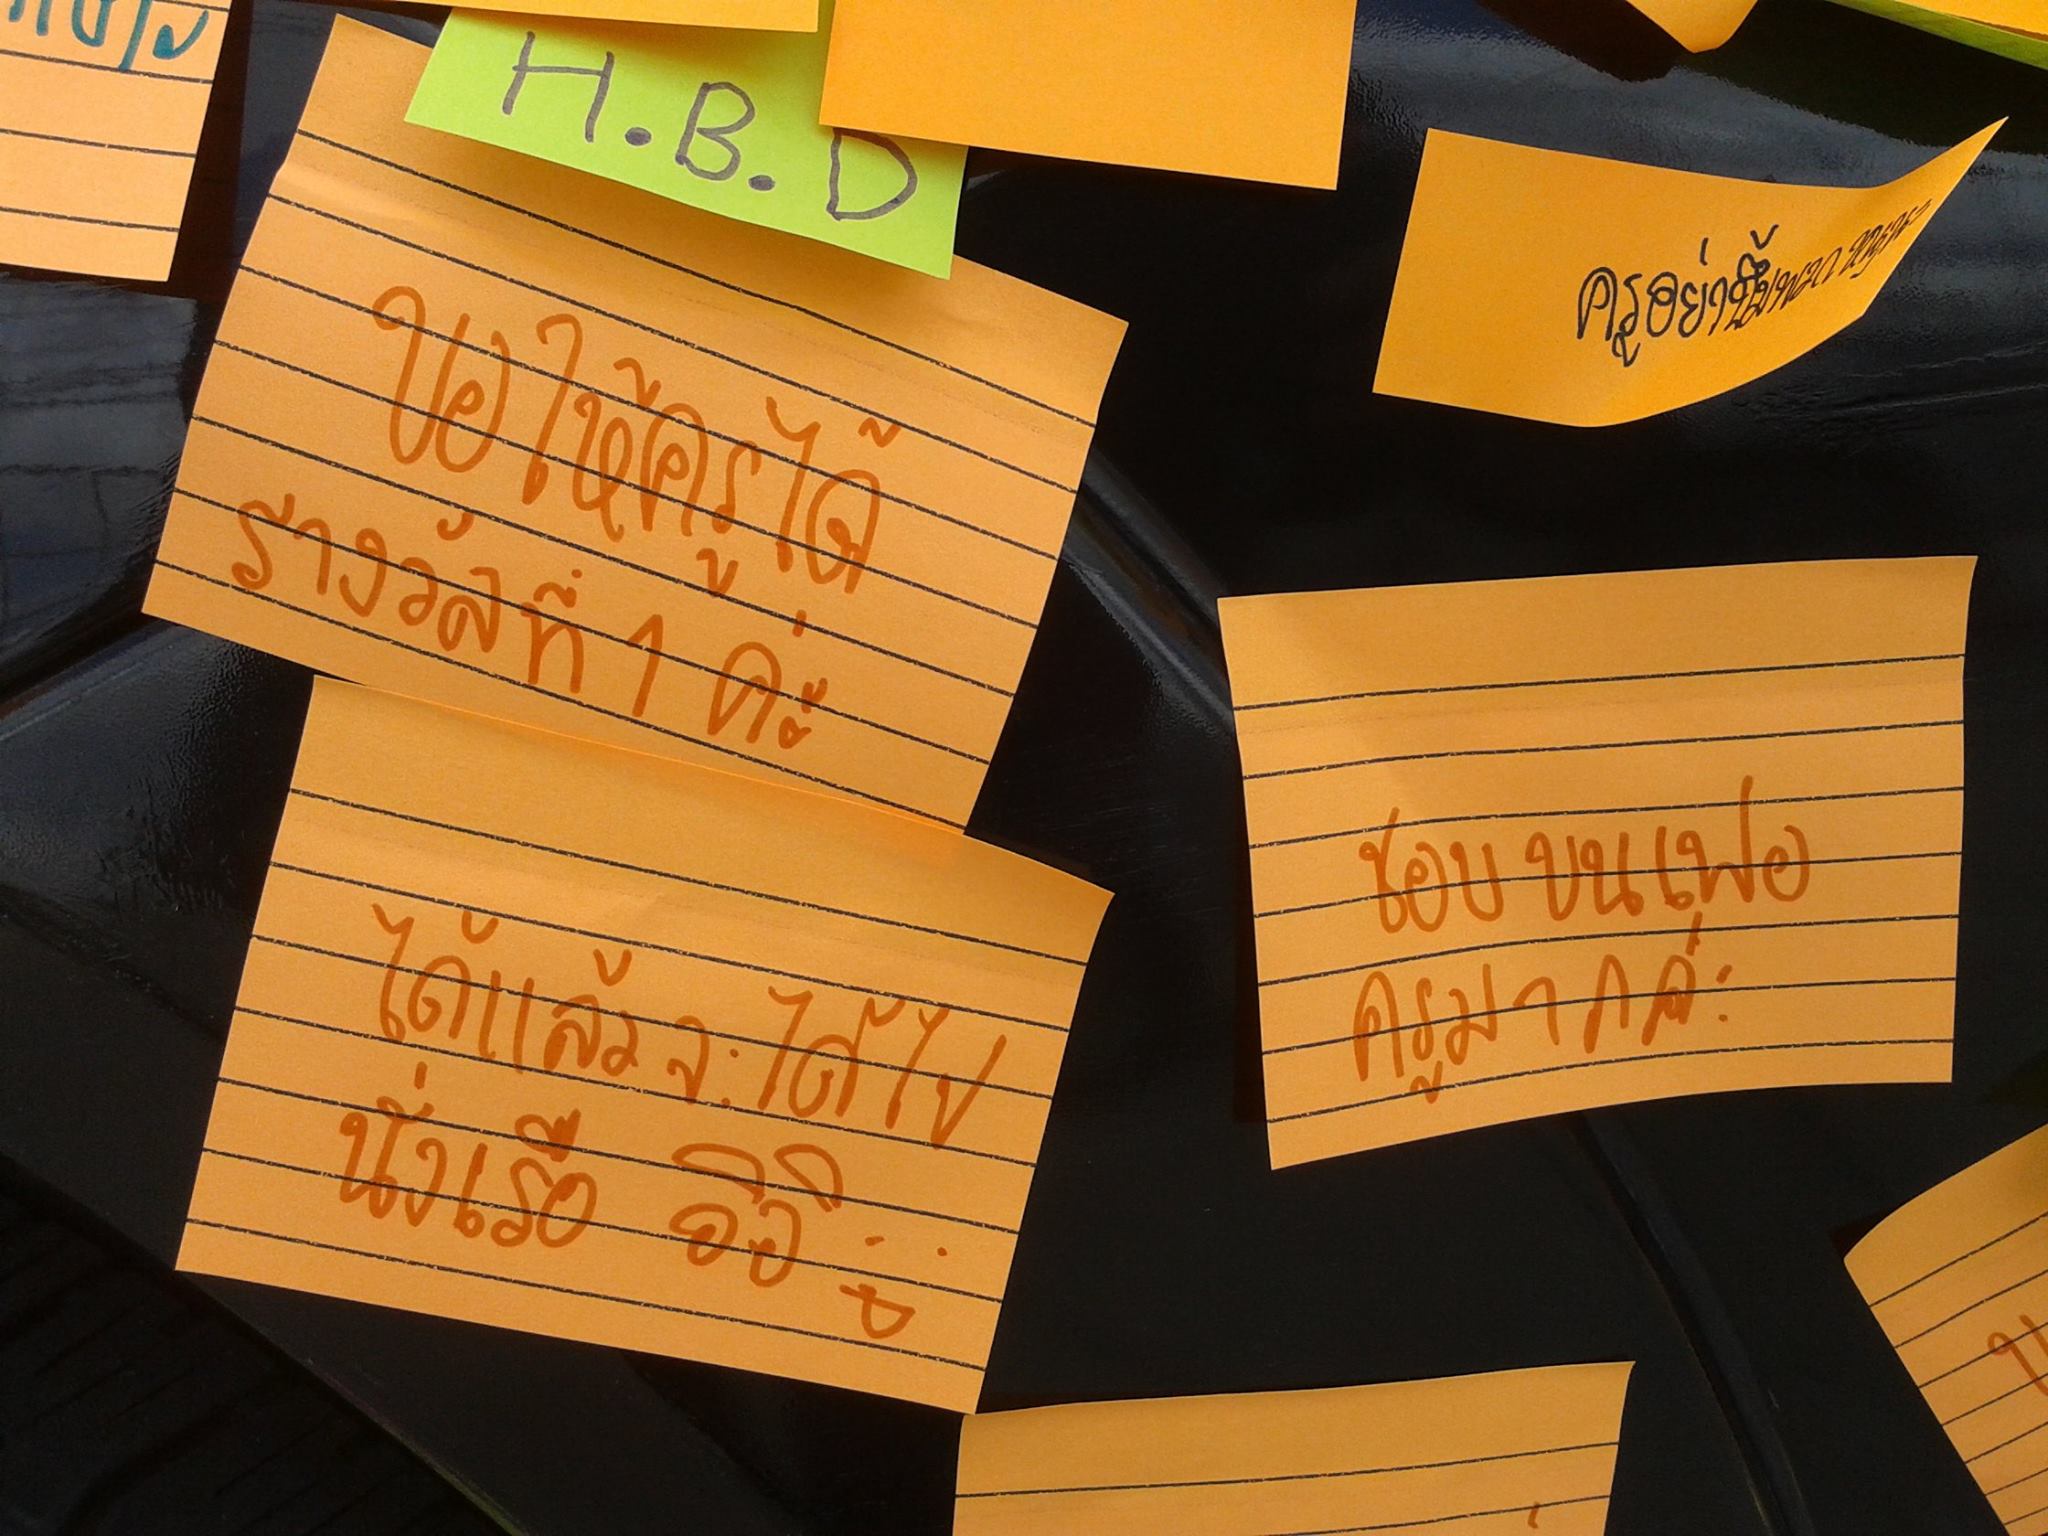 H.B.D
ขอให้ครูได้
รางวัลที่ 1 ค่ะ
ครูอย่าลืมพวก
ชอบขนเฟอ
ครูมากค่ะ
ได้แล้วจะได้ไป
นั่งเรือ อิอิ